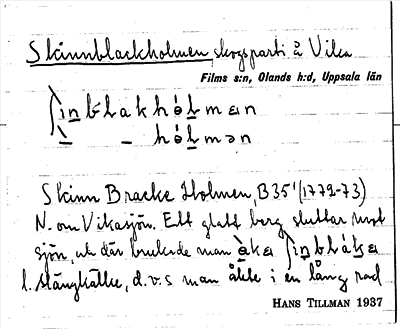 Skinnblackholmen skogsparti å Vika
Films s:n, Olands h:d, Uppsala län
ʃin̲blakhólmɛn
– hólmən
Skinn Bracke Holmen, B35¹ (1772-73)
N. om Vikasjön. Ett glatt berg sluttar mot
sjön, och där brukade man åka ʃin̲blák̲ɛ
l. stångkälke, d.v.s man åkte i en lång rad
HANS TILLMAN 1937